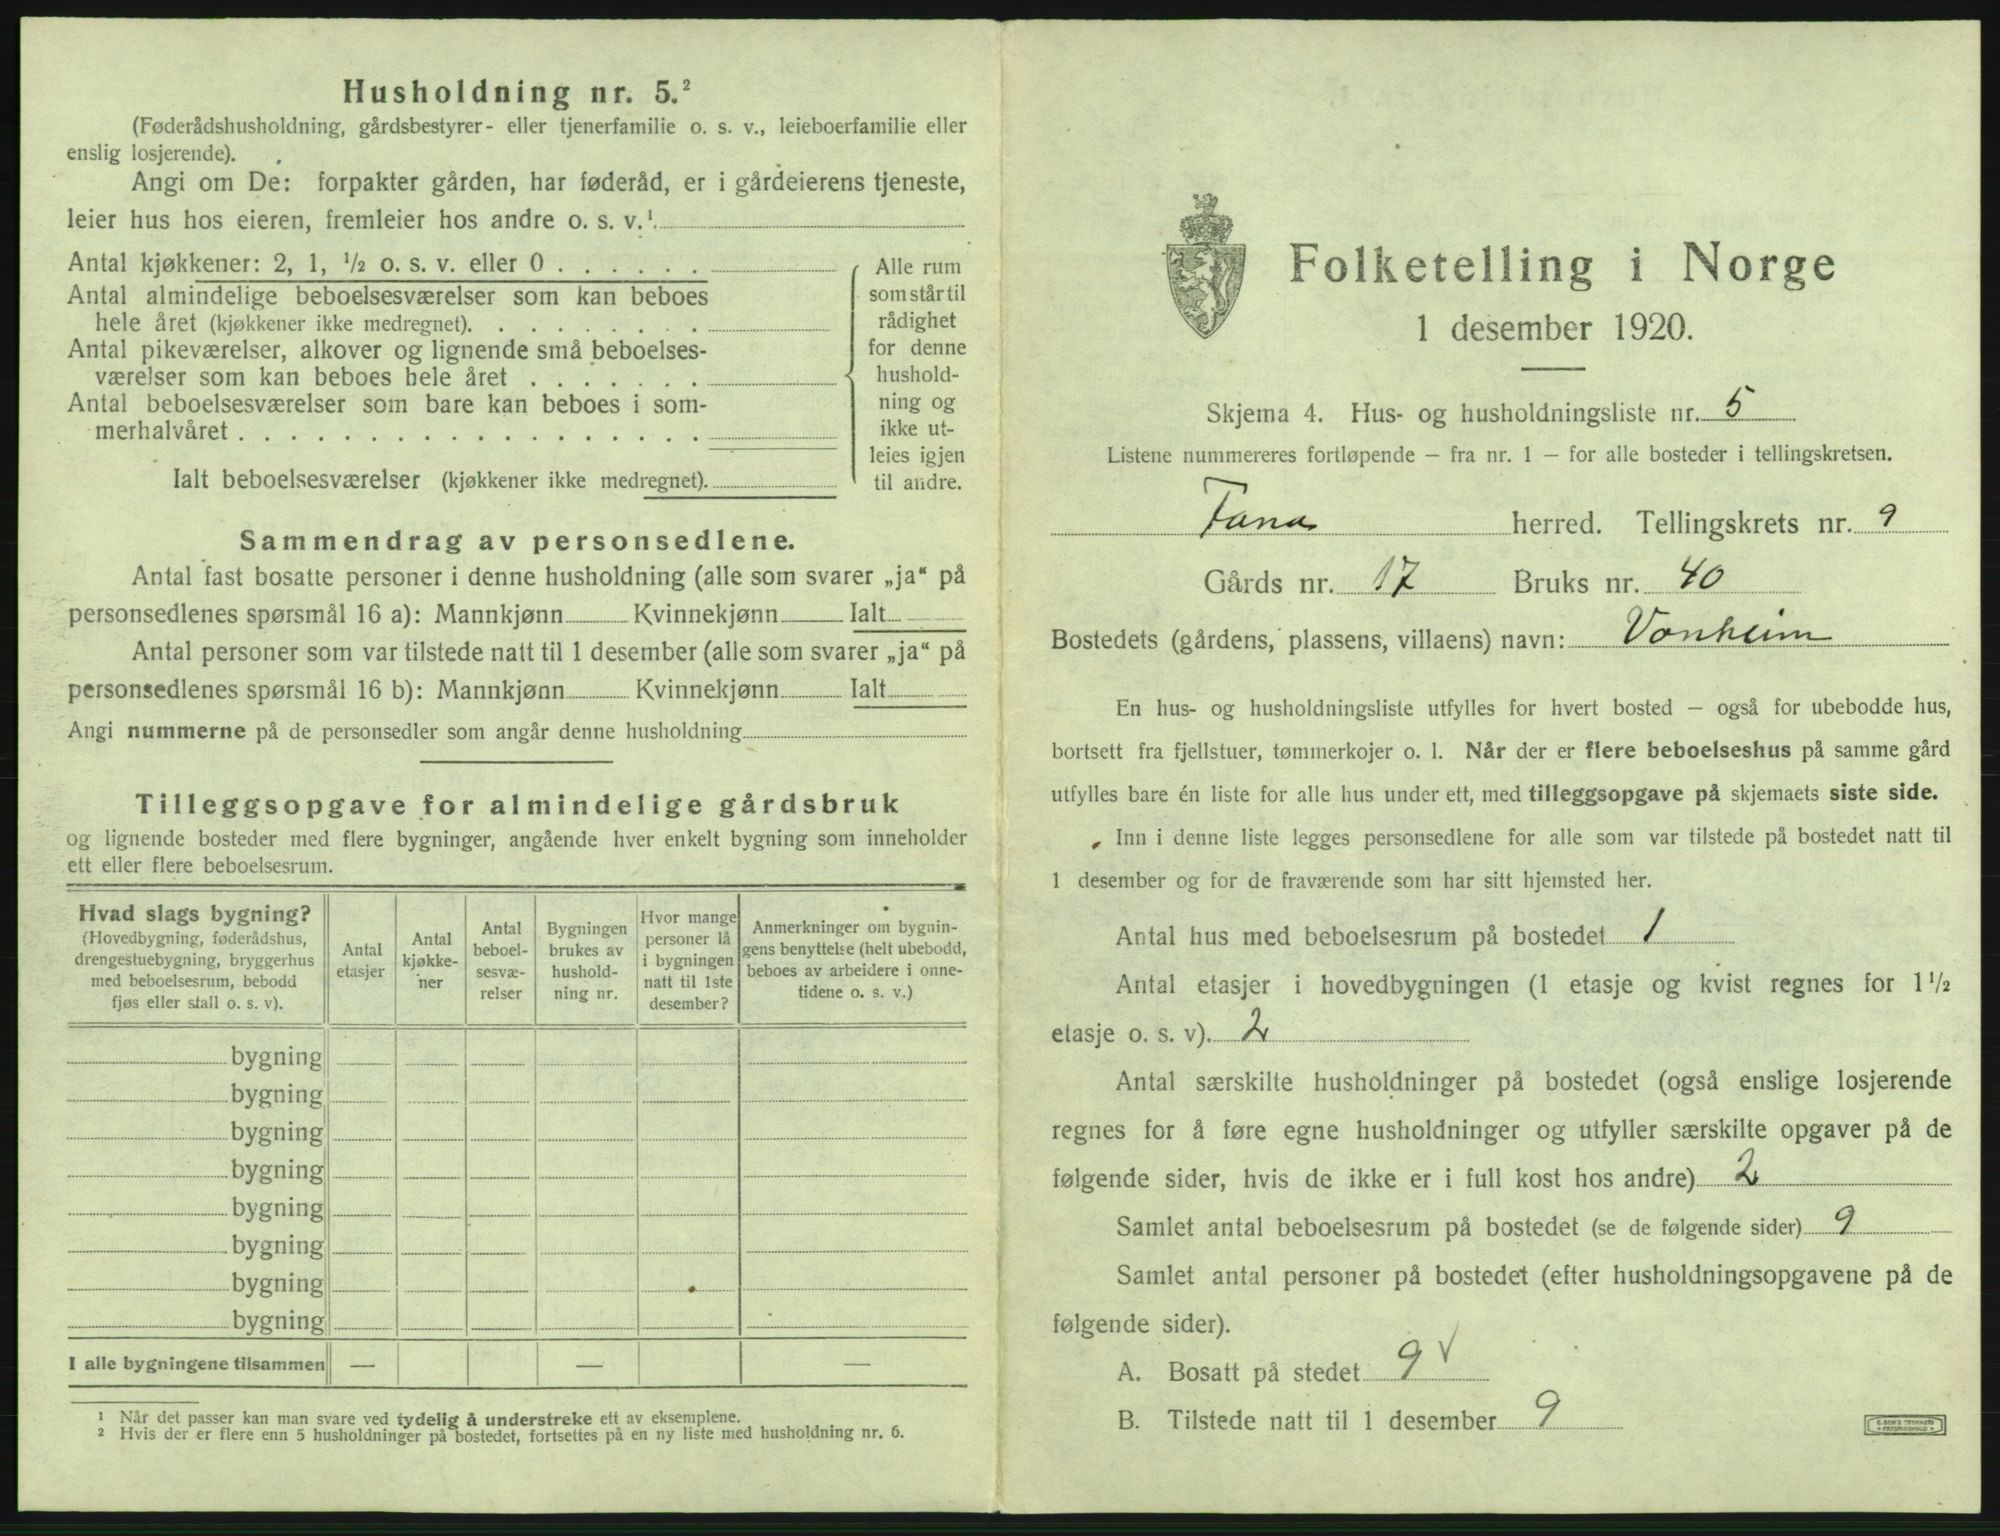 Husholdning nr. 5.²
(Føderådshusholdning, gårdsbestyrer- eller tjenerfamilie o. s. v., leieboerfamilie eller
enslig losjerende).
Angi om De: forpakter gården, har føderåd, er i gårdeierens tjeneste,
leier hus hos eieren, fremleier hos andre o. s. v.¹
Antal kjøkkener: 2, 1, ½ o. s. v. eller 0 . . . . . .
Antal almindelige beboelsesværelser som kan beboes
hele året (kjøkkener ikke medregnet). . . . . . . . .
Antal pikeværelser, alkover og lignende små beboelses-
værelser som kan beboes hele året . . . . . . .
Antal beboelsesværelser som bare kan beboes i som-
merhalvåret . . . . . . . . . . . . . . . . . .
Ialt beboelsesværelser (kjøkkener ikke medregnet).
Alle rum
som står til
rådighet
for denne
hushold-
ning og
ikke ut-
leies igjen
til andre.
Sammendrag av personsedlene.
Antal fast bosatte personer i denne husholdning (alle som svarer „ja“ på
personsedlenes spørsmål 16 a): Mannkjønn Kvinnekjønn Ialt
Antal personer som var tilstede natt til 1 desember (alle som svarer „ja“ på
personsedlenes spørsmål 16 b): Mannkjønn Kvinnekjønn Ialt
Angi nummerne på de personsedler som angår denne husholdning
Tilleggsopgave for almindelige gårdsbruk
og lignende bosteder med flere bygninger, angående hver enkelt bygning som inneholder
ett eller flere beboelsesrum.
Hvad slags bygning?
(Hovedbygning, føderådshus,
drengestuebygning, bryggerhus
med beboelsesrum, bebodd
fjøs eller stall o. s. v).
Antal
etasjer
Antal
kjøkke-
ner
Antal
beboel-
sesvæ-
relser
Bygningen
brukes av
hushold-
ning nr.
Hvor mange
personer lå
i bygningen
natt til 1ste
desember?
Anmerkninger om bygnin-
gens benyttelse (helt ubebodd,
beboes av arbeidere i onne-
tidene o. s. v.)
bygning
bygning
bygning
bygning
bygning
bygning
bygning
bygning
I alle bygningene tilsammen — — —
¹ Når det passer kan man svare ved tydelig å understreke ett av eksemplene.
² Hvis der er flere enn 5 husholdninger på bostedet, fortsettes på en ny liste med husholdning nr. 6.
Folketelling i Norge
1 desember 1920.
Skjema 4. Hus- og husholdningsliste nr. 5
Listene nummereres fortløpende – fra nr. 1 – for alle bosteder i tellingskretsen.
Fana herred. Tellingskrets nr. 9
Gårds nr. 17 Bruks nr. 40
Bostedets (gårdens, plassens, villaens) navn: Vonheim
En hus- og husholdningsliste utfylles for hvert bosted – også for ubebodde hus,
bortsett fra fjellstuer, tømmerkojer o. l. Når der er flere beboelseshus på samme gård
utfylles bare én liste for alle hus under ett, med tilleggsopgave på skjemaets siste side.
Inn i denne liste legges personsedlene for alle som var tilstede på bostedet natt til
1 desember og for de fraværende som har sitt hjemsted her.
Antal hus med beboelsesrum på bostedet 1
Antal etasjer i hovedbygningen (1 etasje og kvist regnes for 1½
etasje o. s. v). 2
Antal særskilte husholdninger på bostedet (også enslige losjerende
regnes for å føre egne husholdninger og utfyller særskilte opgaver på de
følgende sider, hvis de ikke er i full kost hos andre) 2
Samlet antal beboelsesrum på bostedet (se de følgende sider) 9
Samlet antal personer på bostedet (efter husholdningsopgavene på de
følgende sider).
A. Bosatt på stedet 9 √
B. Tilstede natt til 1 desember 9